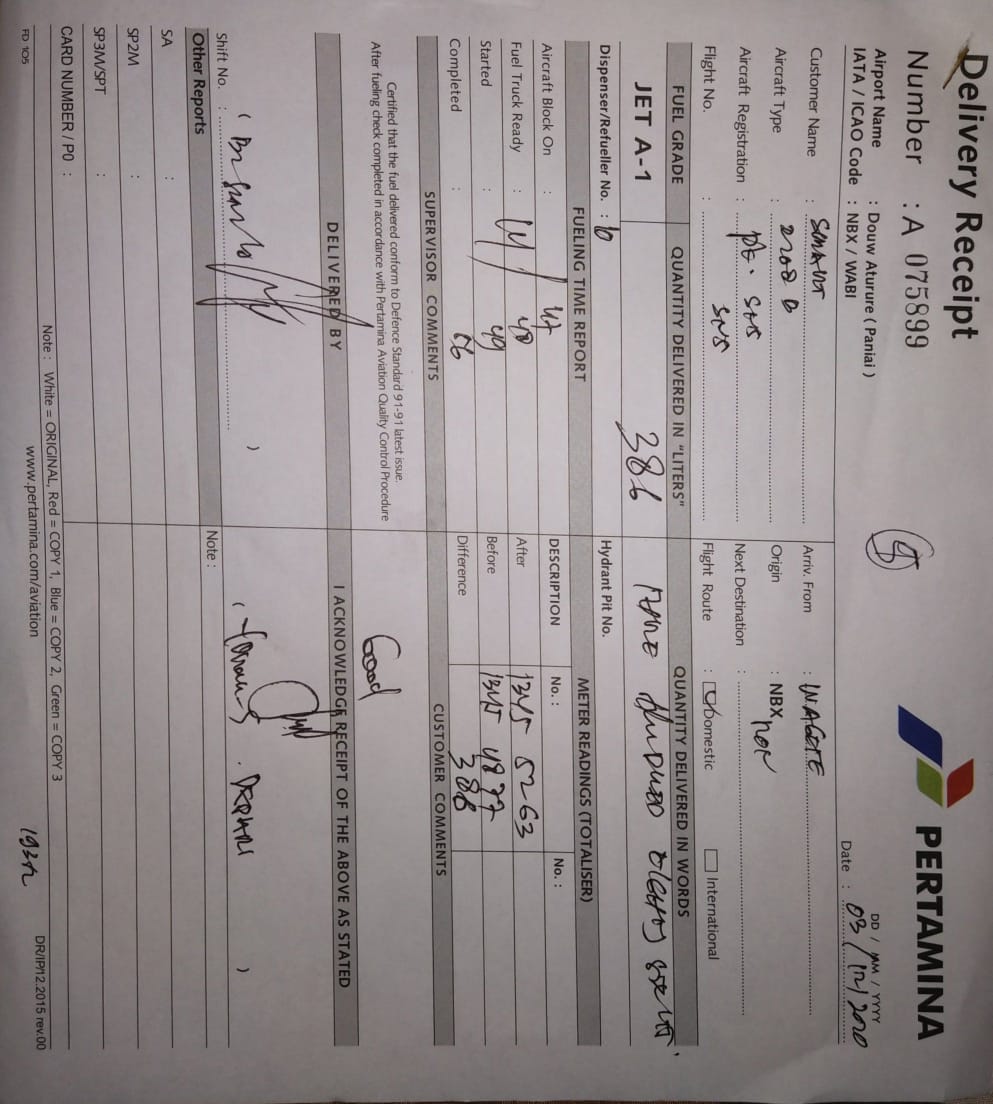 Delivery Receipt
Number : A 075899
PERTAMINA
Airport Name : Douw Aturure ( Paniai )
IATA / ICAO Code : NBX / WABI
DD / MM / YYYY
Date : 03 / 12 / 2020
Customer Name :
Arriv. From :
Aircraft Type :
Origin : NBX
Aircraft Registration : PK. SNS
Next Destination :
Flight No. : SNS
Flight Route : Domestic International
FUEL GRADE QUANTITY DELIVERED IN "LITERS" QUANTITY DELIVERED IN WORDS
JET A-1 386
Dispenser/Refueller No. : Hydrant Pit No.
FUELING TIME REPORT METER READINGS (TOTALISER)
Aircraft Block On : 47
DESCRIPTION No. : No. :
Fuel Truck Ready : 48
After 1345 5263
Started : 49
Before 1345 4877
Completed : 56
Difference
SUPERVISOR COMMENTS CUSTOMER COMMENTS
Good
Certified that the fuel delivered conform to Defence Standard 91-91 latest issue.
After fueling check completed in accordance with Pertamina Aviation Quality Control Procedure
DELIVERED BY I ACKNOWLEDGE RECEIPT OF THE ABOVE AS STATED
Shift No. : ( )
( )
Other Reports Note :
SA :
SP2M :
SP3M/SPT :
CARD NUMBER / P0 :
Note : White = ORIGINAL, Red = COPY 1, Blue = COPY 2, Green = COPY 3
www.pertamina.com/aviation
FD 105
DR/IP/12.2015 rev.00